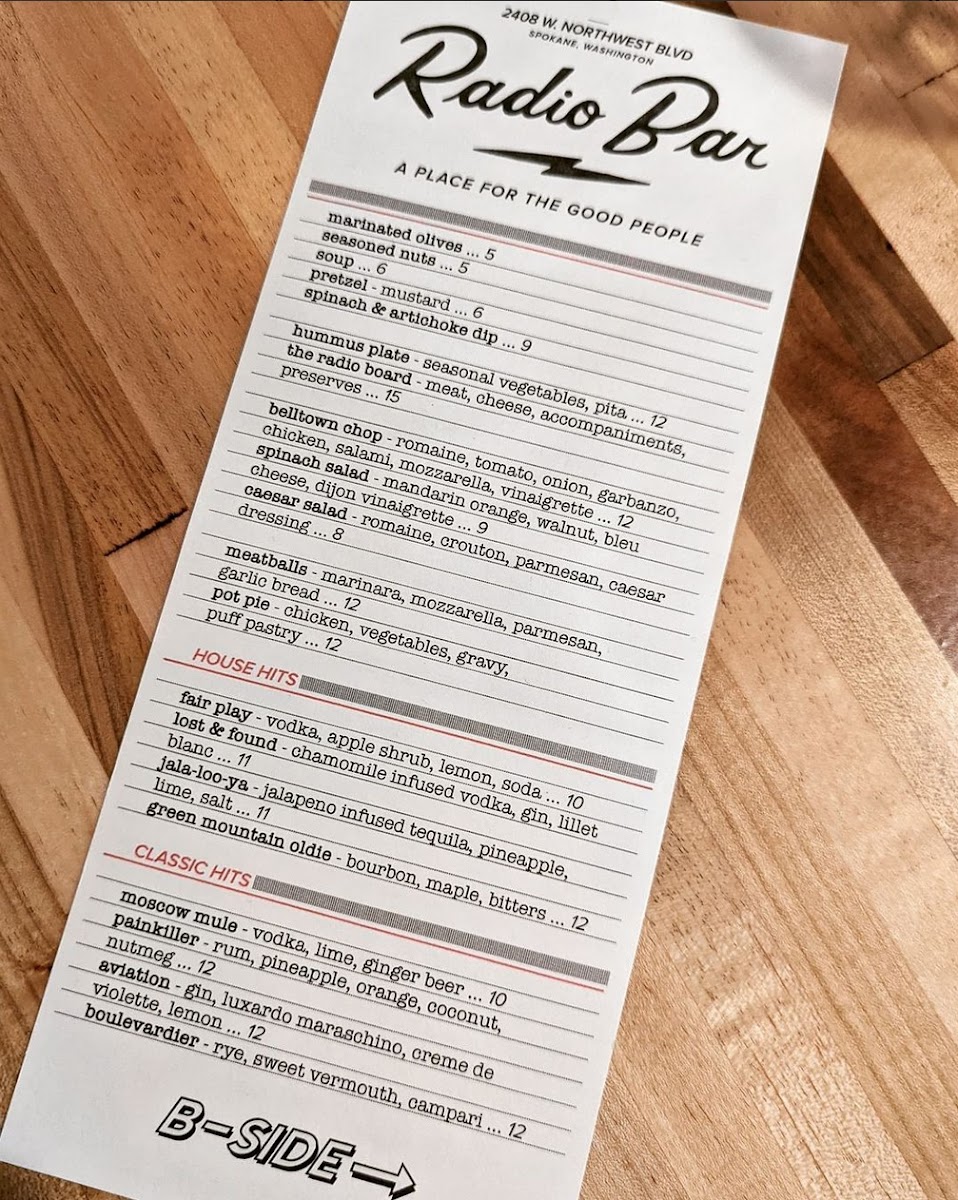 2408 W. NORTHWEST BLVD
SPOKANE, WASHINGTON
Radio Bar
A PLACE FOR THE GOOD PEOPLE
marinated olives ... 5
seasoned nuts ... 5
soup ... 6
pretzel - mustard ... 6
spinach & artichoke dip ... 9
hummus plate - seasonal vegetables, pita ... 12
the radio board - meat, cheese, accompaniments,
preserves ... 15
belltown chop - romaine, tomato, onion, garbanzo,
chicken, salami, mozzarella, vinaigrette ... 12
spinach salad - mandarin orange, walnut, bleu
cheese, dijon vinaigrette ... 9
caesar salad - romaine, crouton, parmesan, caesar
dressing ... 8
meatballs - marinara, mozzarella, parmesan,
garlic bread ... 12
pot pie - chicken, vegetables, gravy,
puff pastry ... 12
HOUSE HITS
fair play - vodka, apple shrub, lemon, soda ... 10
lost & found - chamomile infused vodka, gin, lillet
blanc ... 11
jala-loo-ya - jalapeno infused tequila, pineapple,
lime, salt ... 11
green mountain oldie - bourbon, maple, bitters ... 12
CLASSIC HITS
moscow mule - vodka, lime, ginger beer ... 10
painkiller - rum, pineapple, orange, coconut,
nutmeg ... 12
aviation - gin, luxardo maraschino, creme de
violette, lemon ... 12
boulevardier - rye, sweet vermouth, campari ... 12
B-SIDE